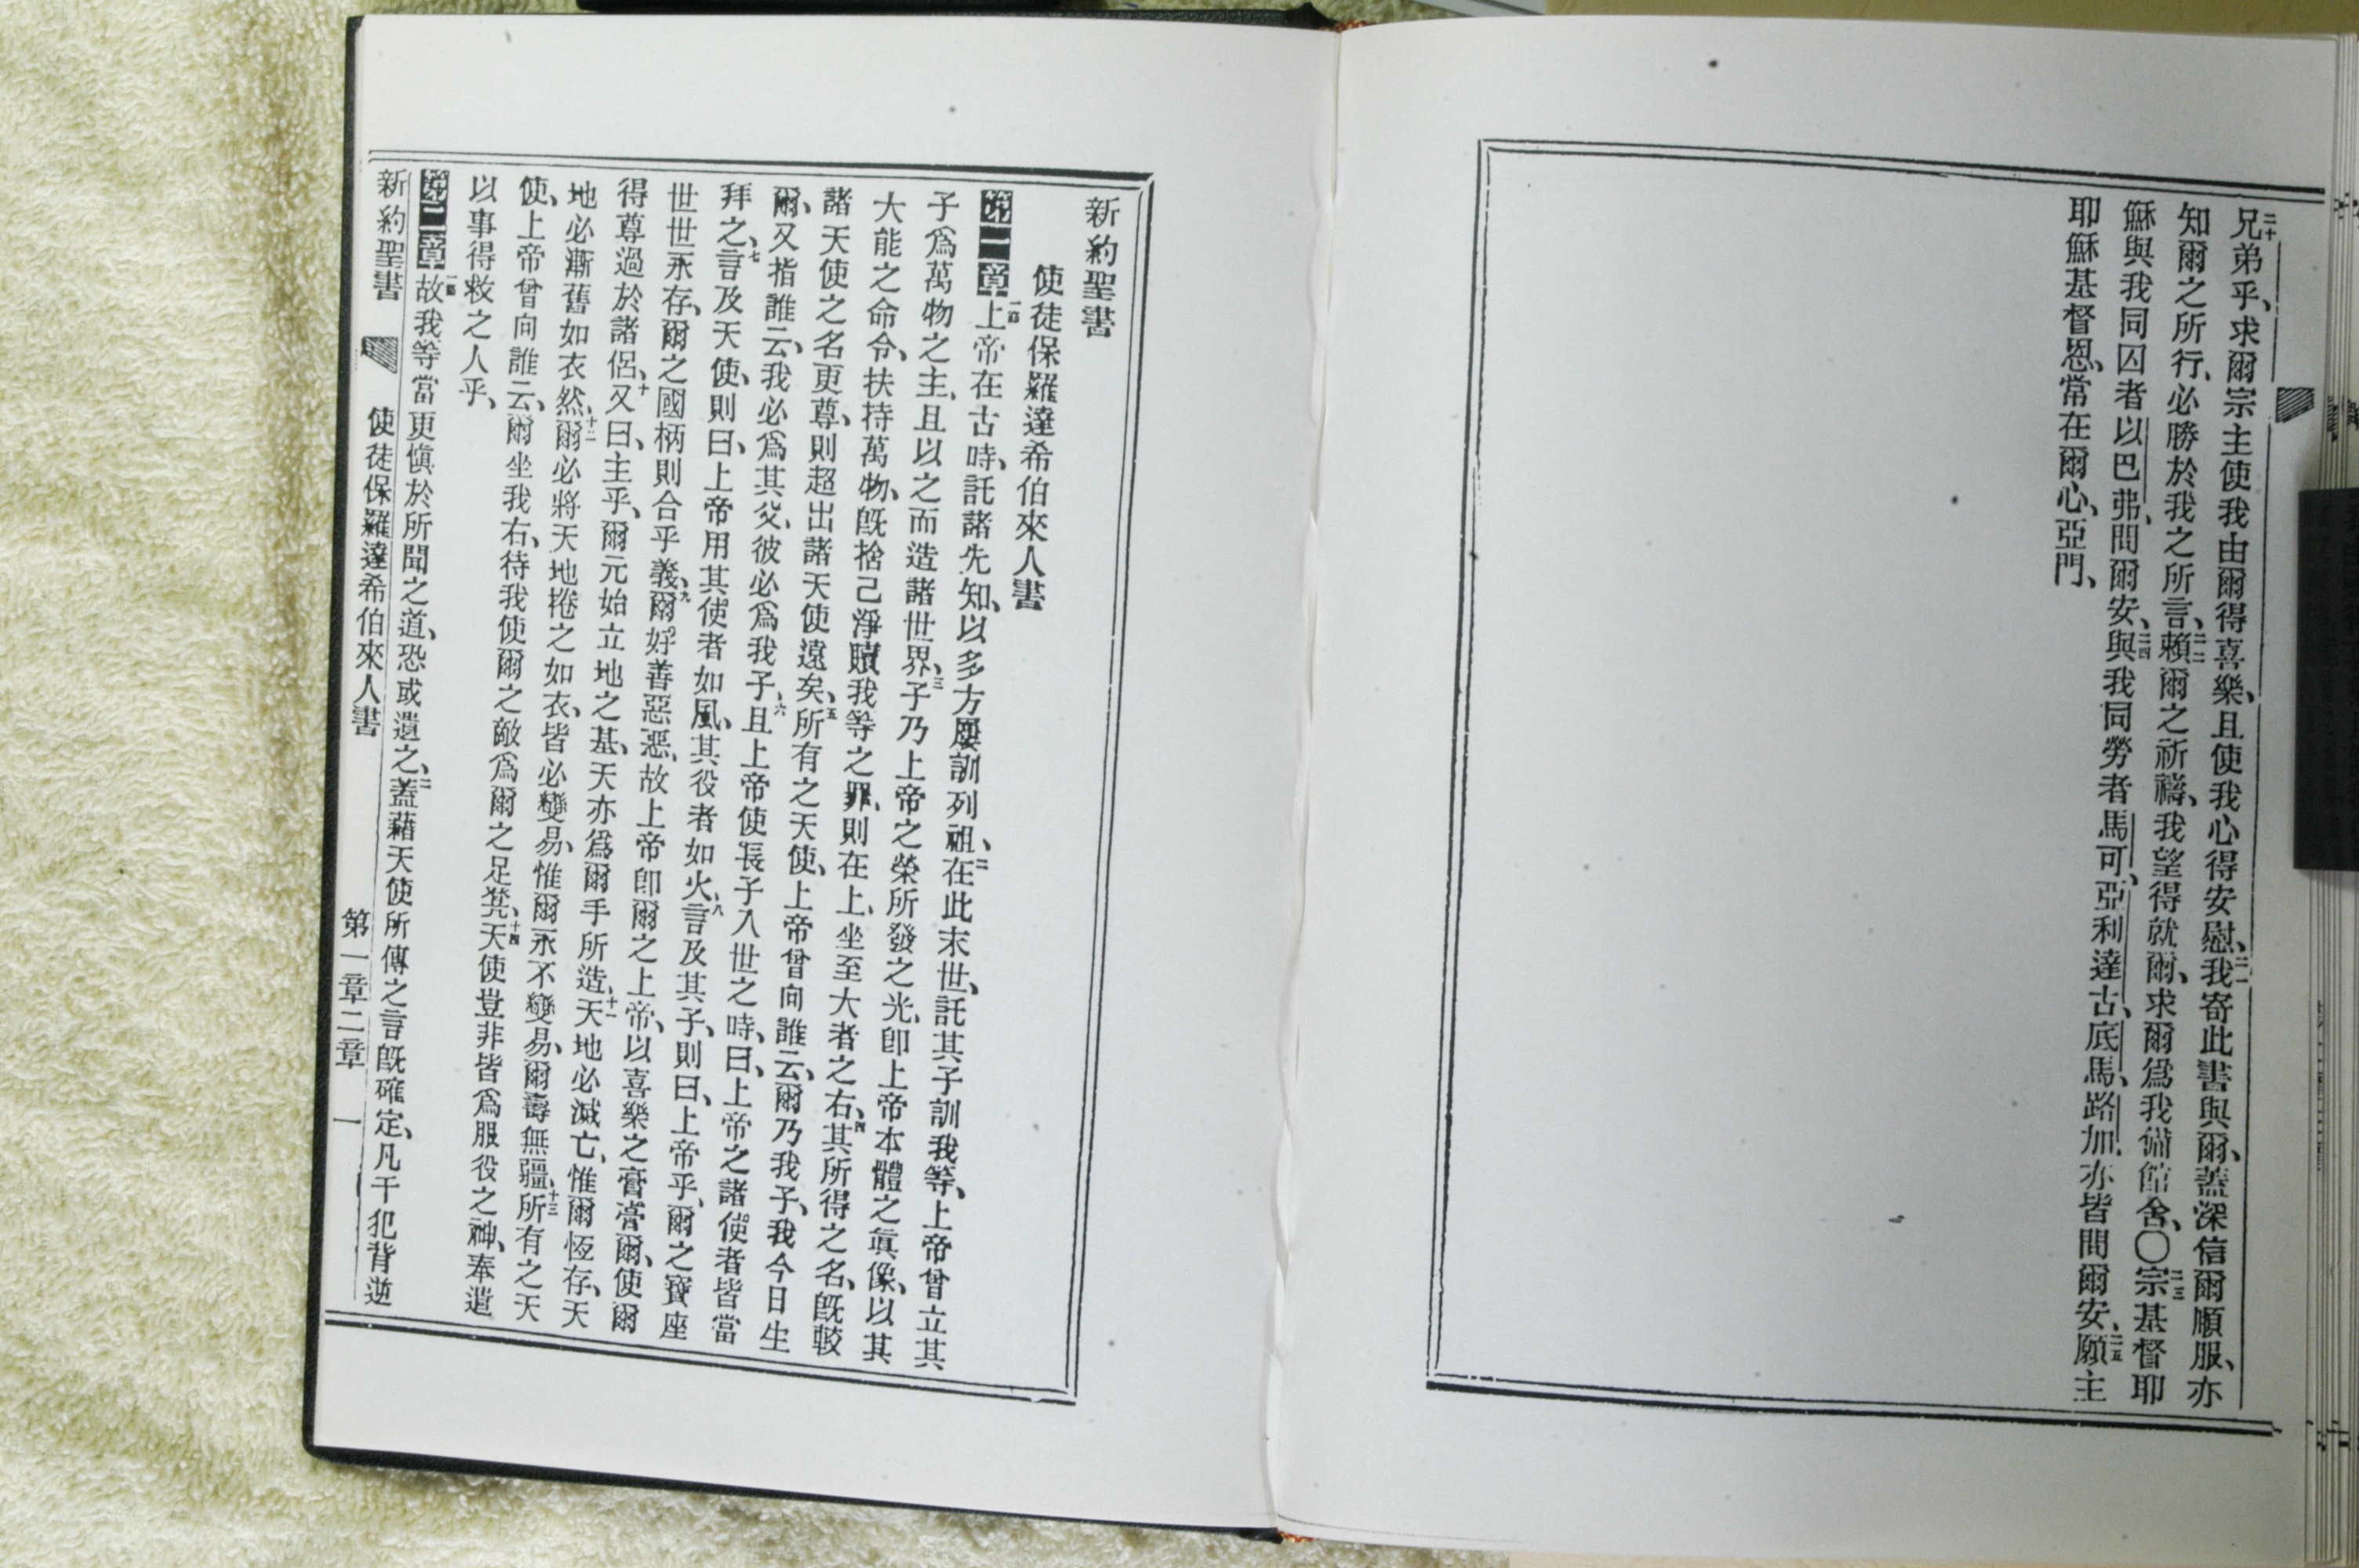 二十兄弟乎、求爾宗主使我由爾得喜樂、且使我心得安慰、二一我寄此書與爾、蓋深信爾順服、亦
知爾之所行、必勝於我之所言、二二賴爾之祈禱、我望得就爾、求爾爲我備館舍、〇二三宗基督耶
穌與我同囚者以巴弗問爾安、二四與我同勞者馬可、亞利達古、底馬、路加、亦皆問爾安、二五願主
耶穌基督恩、常在爾心、亞門、
新約聖書
使徒保羅達希伯來人書
第一章一節上帝在古時、託諸先知、以多方屢訓列祖、二在此末世、託其子訓我等、上帝曾立其
子爲萬物之主、且以之而造諸世界、三子乃上帝之榮所發之光、卽上帝本體之眞像、以其
大能之命令、扶持萬物、旣捨己淨贖我等之罪、則在上、坐至大者之右、四其所得之名、旣較
諸天使之名更尊、則超出諸天使遠矣、五所有之天使、上帝曾向誰云、爾乃我子、我今日生
爾、又指誰云、我必爲其父、彼必爲我子、六且上帝使長子入世之時、曰、上帝之諸使者皆當
拜之、七言及天使、則曰、上帝用其使者如風、其役者如火、八言及其子、則曰、上帝乎、爾之寶座
世世永存、爾之國柄則合乎義、九爾好善惡惡、故上帝卽爾之上帝、以喜樂之膏膏爾、使爾
得尊過於諸侶、十又曰、主乎、爾元始立地之基、天亦爲爾手所造、十一天地必滅亡、惟爾恆存、天
地必漸舊如衣然、十二爾必將天地捲之如衣、皆必變易、惟爾永不變易、爾壽無疆、十三所有之天
使、上帝曾向誰云、爾坐我右、待我使爾之敵爲爾之足凳、十四天使豈非皆爲服役之神、奉遣
以事得救之人乎、
第二章一節故我等當更愼於所聞之道、恐或遺之、二蓋藉天使所傳之言旣確定、凡干犯背逆
新約聖書 使徒保羅達希伯來人書 第一章二章 一